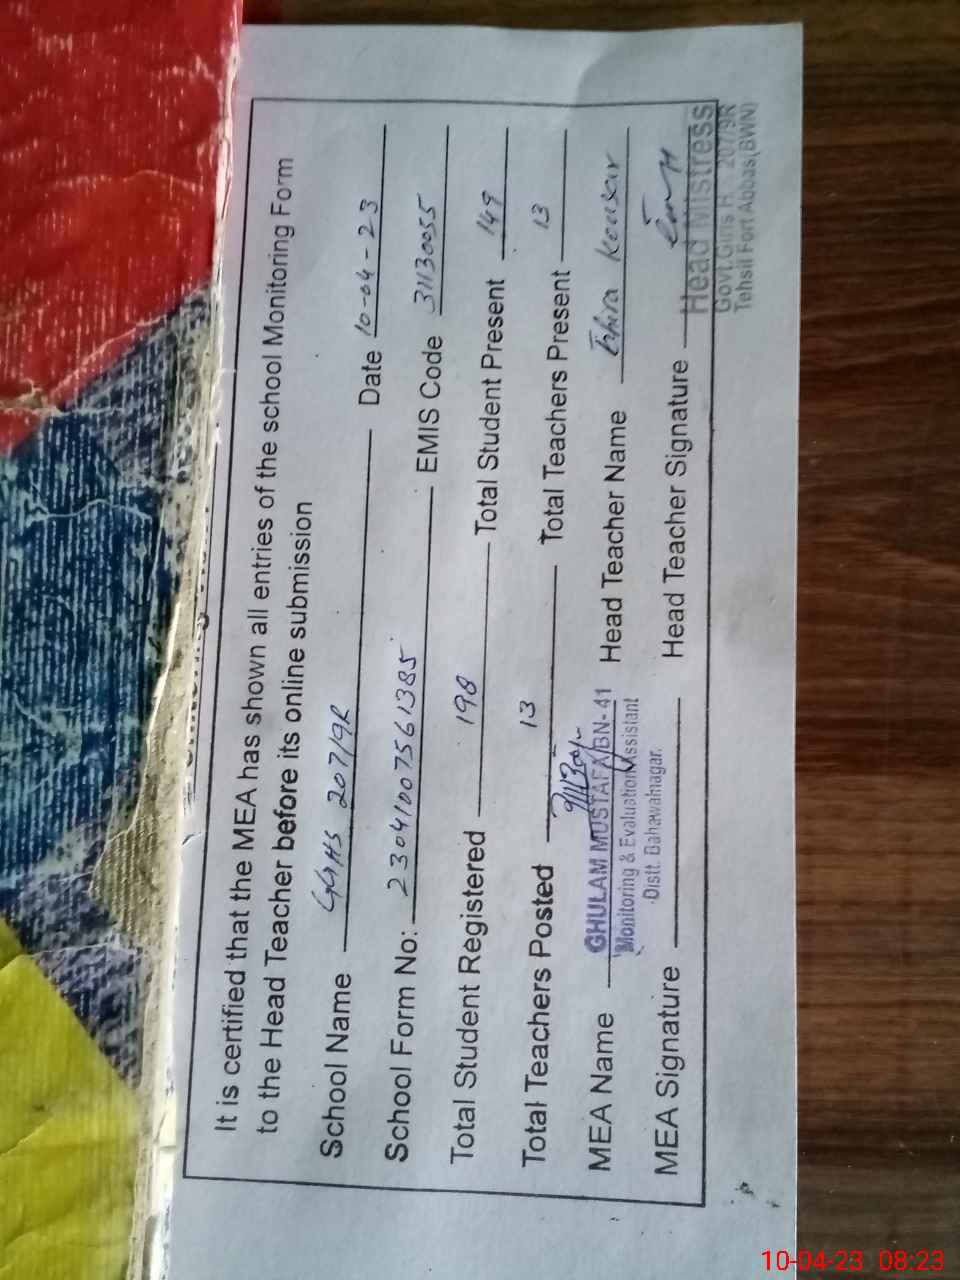 It is certified that the MEA has shown all entries of the school Monitoring Form
to the Head Teacher before its online submission
School Name GGHS 207/9R Date 10-04-23
School Form No: 23041007561385 EMIS Code 31130055
Total Student Registered 198 Total Student Present 149
Total Teachers Posted 13 Total Teachers Present 13
MEA Name GHULAM MUSTAFA BN-41 Head Teacher Name Kousar
Monitoring & Evaluation Assistant
Distt. Bahawalnagar.
MEA Signature Head Teacher Signature
Head Mistress
Govt. Girls H 207/9R
Tehsil Fort Abbas (BWN)
10-04-23 08:23